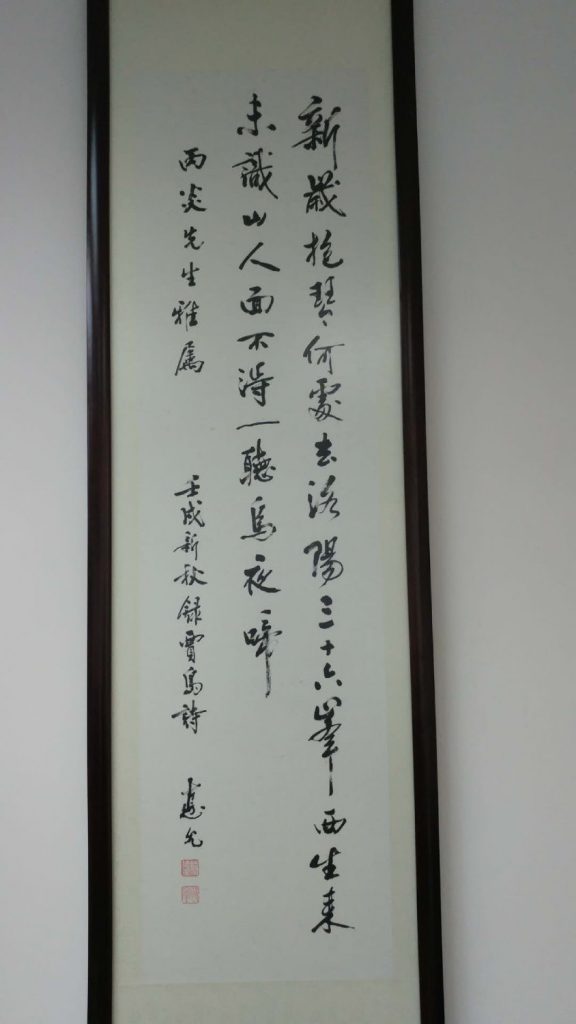 新歲抱琴何處去洛陽三十六峯西生來
未識山人面不得一聽烏夜啼
丙炎先生雅屬
壬戌新秋録賈島詩